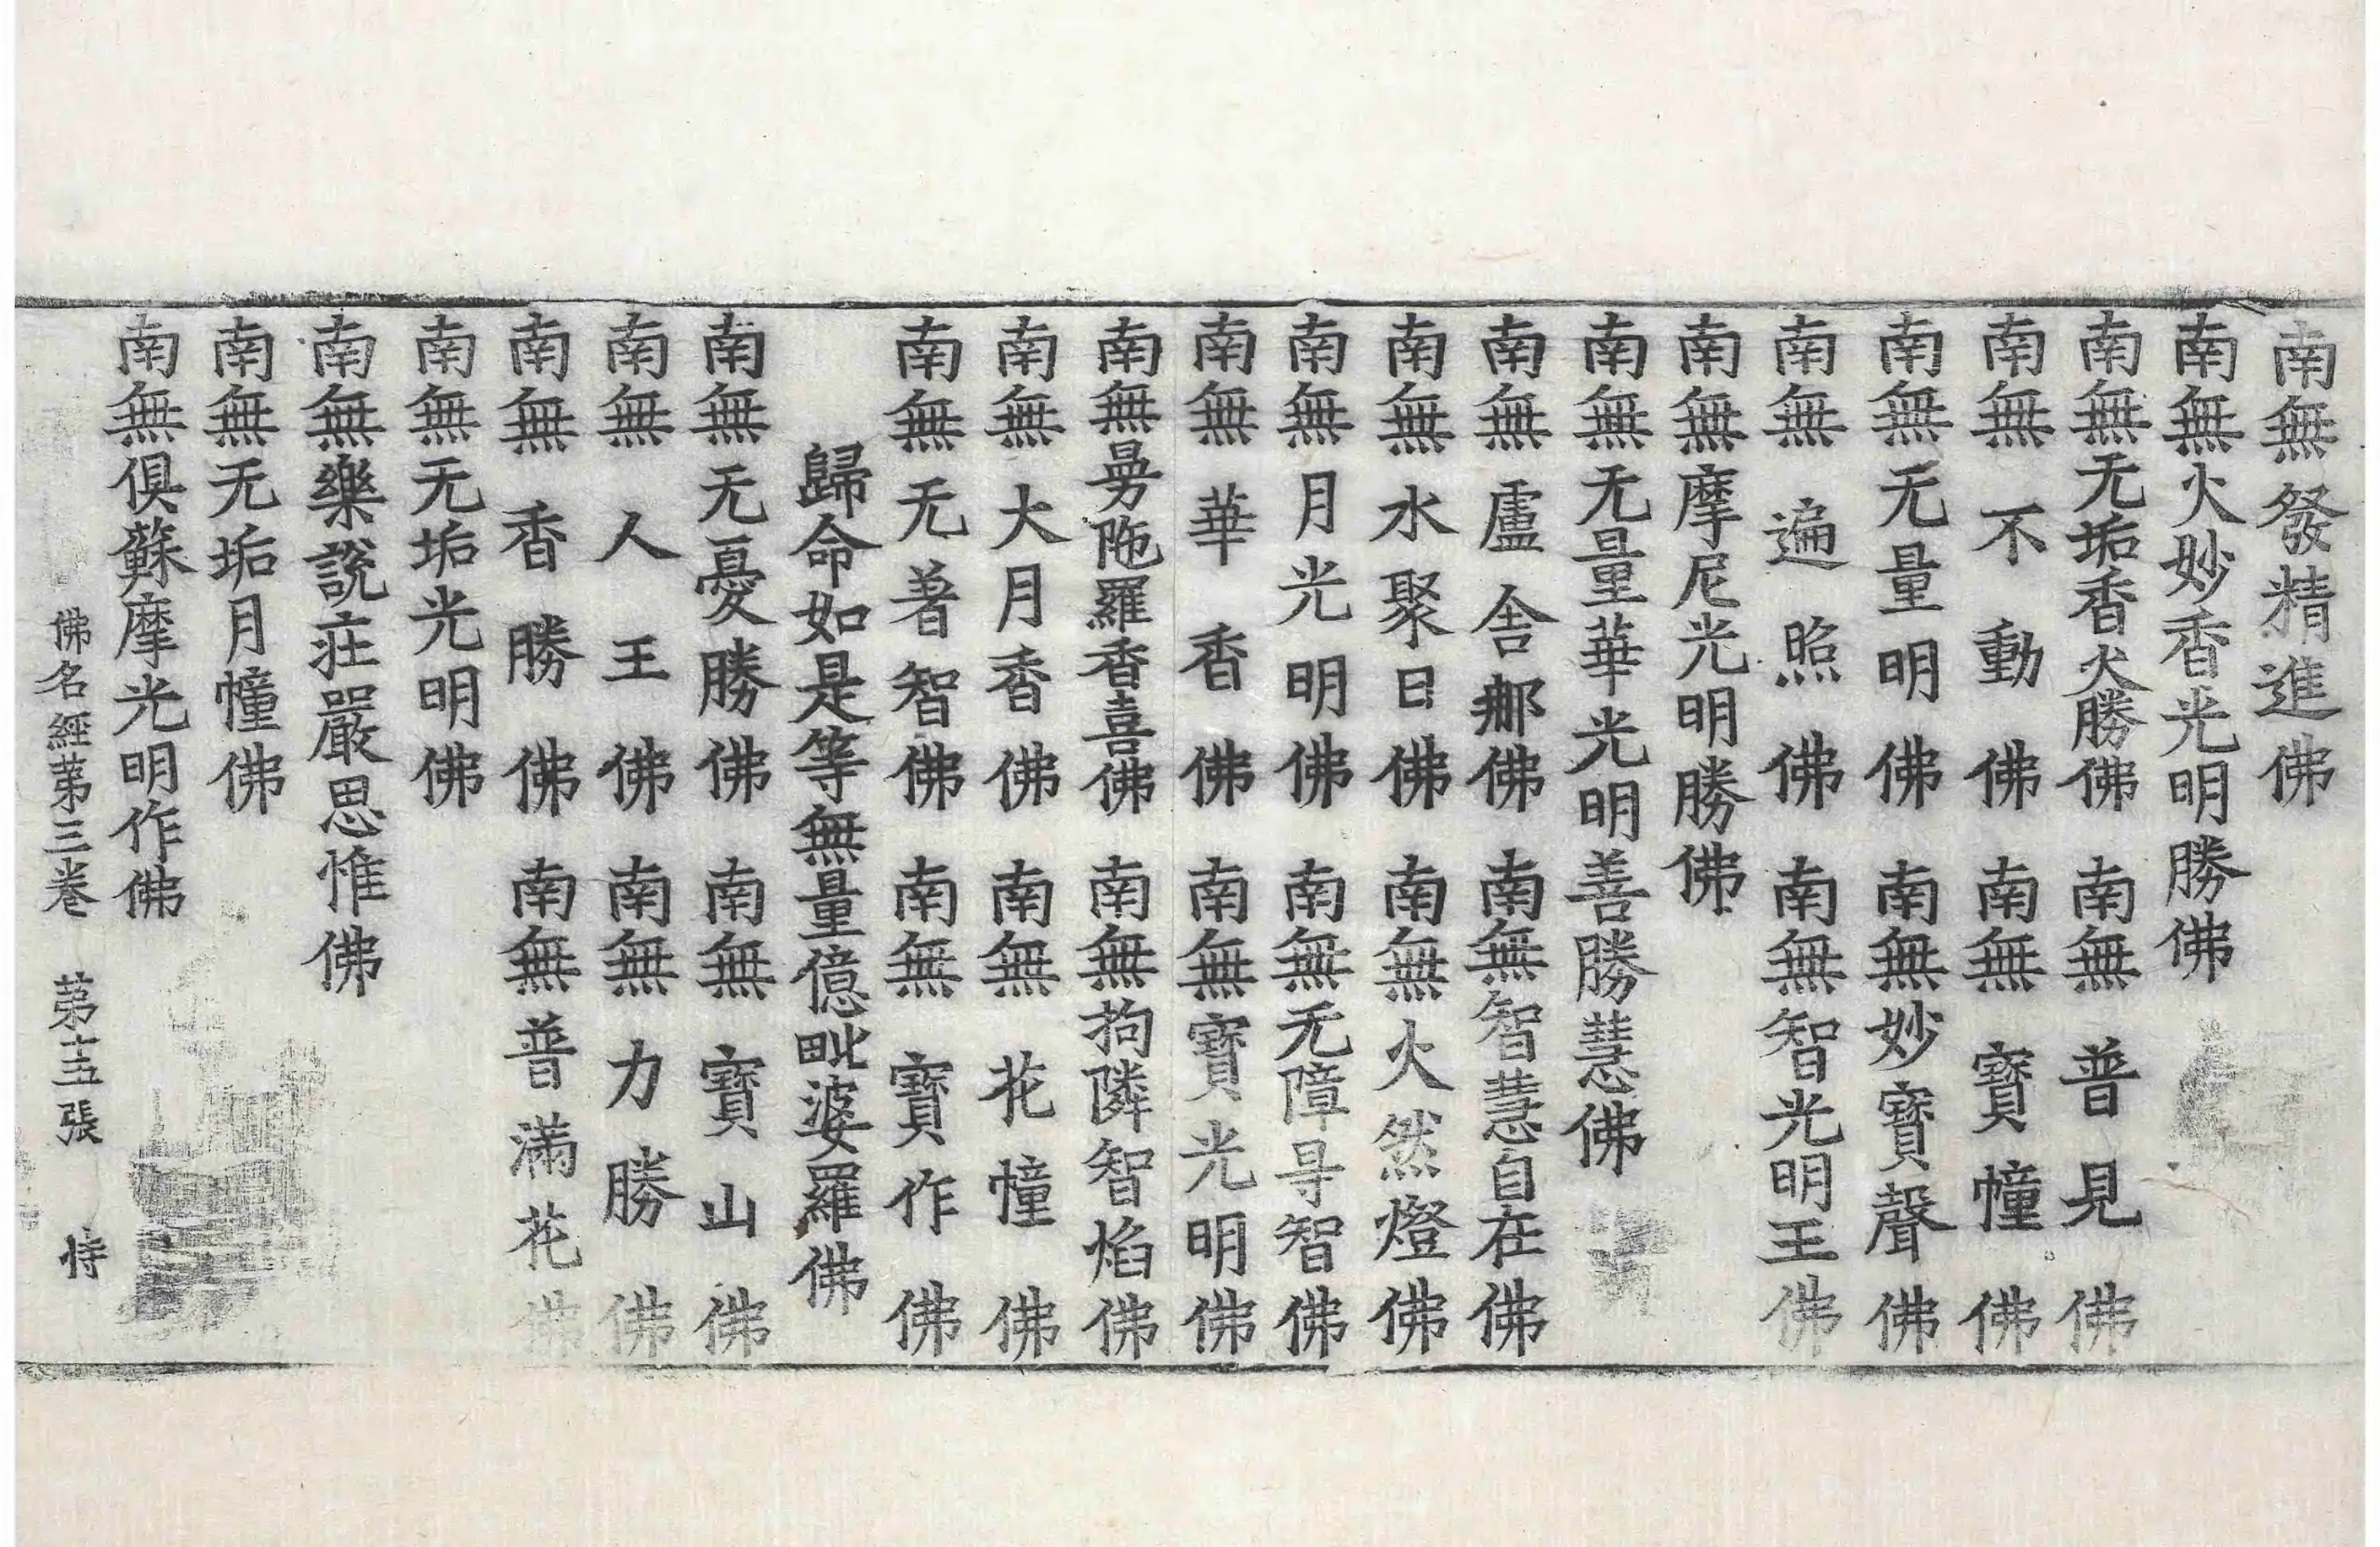 南無發精進佛
南無火妙香光明勝佛
南無无垢香火勝佛　南無普見佛
南無不動佛　南無寶幢佛
南無无量明佛　南無妙寶聲佛
南無遍照佛　南無智光明王佛
南無摩尼光明勝佛
南無无量華光明善勝慧佛
南無盧舍那佛　南無智慧自在佛
南無水聚日佛　南無火然燈佛
南無月光明佛　南無无障㝵智佛
南無華香佛　南無寶光明佛
南無曼陁羅香喜佛　南無拘隣智焰佛
南無大月香佛　南無花幢佛
南無无著智佛　南無寶作佛
歸命如是等無量億毗婆羅佛
南無无憂勝佛　南無寶山佛
南無人王佛　南無力勝佛
南無香勝佛　南無普滿花佛
南無无垢光明佛
南無樂說莊嚴思惟佛
南無无垢月幢佛
南無俱蘇摩光明作佛
佛名經苐三卷　苐十五張